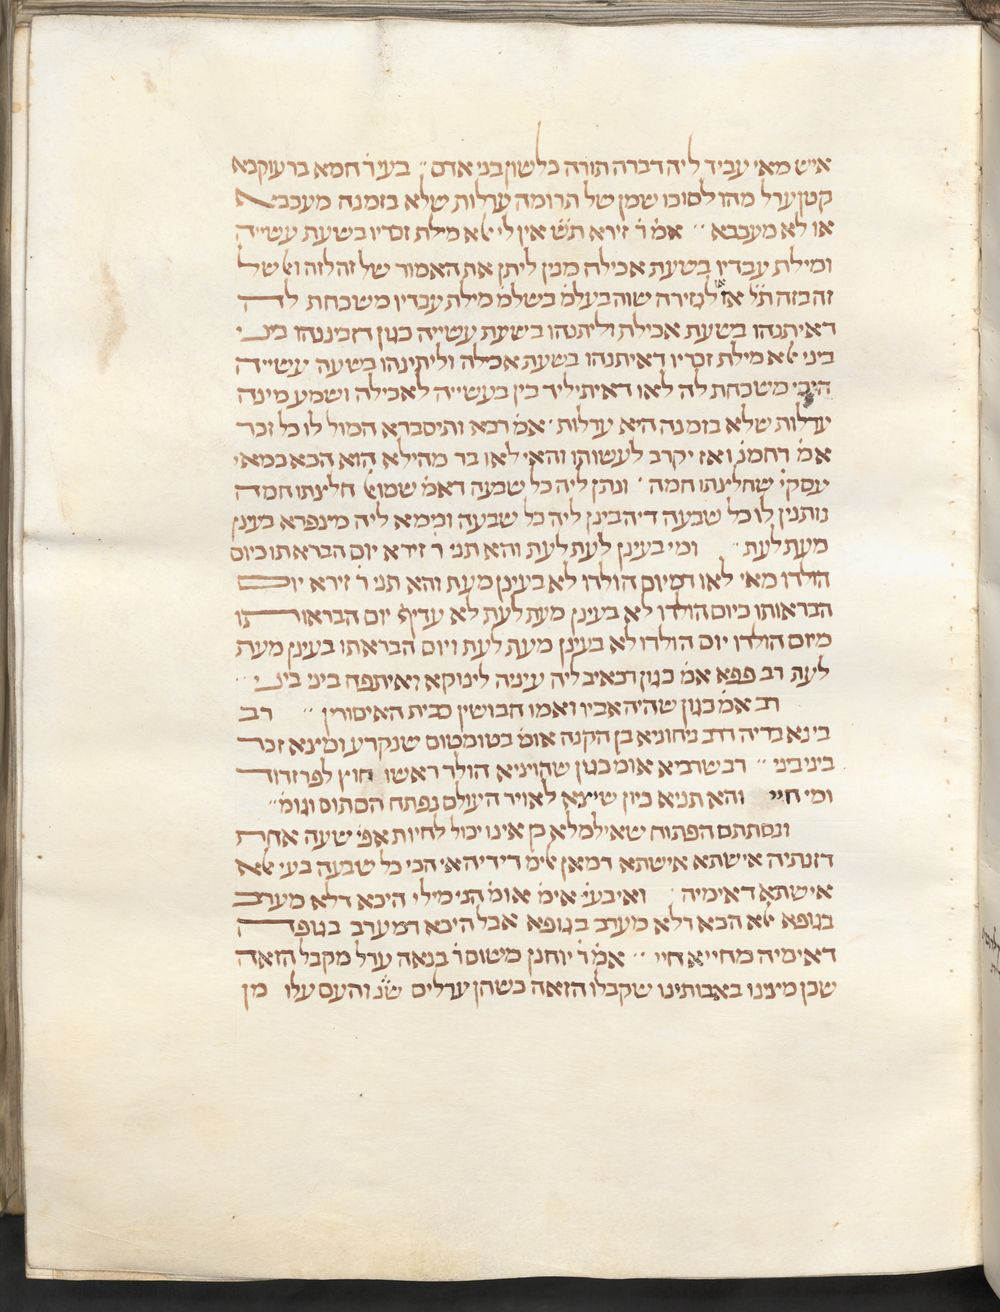 איש מאי עביד ליה דברה תורה כלשון בני אדם ׳׳ בעי ר׳ חמא בר עוקבא
קטן ערל מהו לסוכו שמן של תרומה ערלות שלא בזמנה מעכבא
או לא מעכבא ׳׳ אמ׳ ר׳ זירא ת״ש אין לי אלא מילת זכריו בשעת עשייה
ומילת עבדיו בשעת אכילה מנין ליתן את האמור של זה לזה ואת של
זה בזה ת״ל אז אז לגזירה שוה בשלמ׳ מילת עבדיו משכחת לה
דאיתנהו בשעת אכילה וליתנהו בשעת עשייה כגון דזביננהו ביני
ביני אלא מילת זכריו דאיתנהו בשעת אכילה וליתינהו בשעה עשייה
היכי משכחת לה לאו דאיתיליד בין בעשייה לאכילה ושמע מינה
ערלות שלא בזמנה היא ערלות ׳ אמ׳ רבא ותיסברא המול לו כל זכר
אמ׳ רחמנ׳ ואז יקרב לעשותו והאי לאו בר מהילא הוא הכא במאי
עסקי׳ שחלצתו חמה ׳ ונתן ליה כל שבעה דאמ׳ שמואל חלצתו חמה
נותנין לו כל שבעה דיהבינן ליה כל שבעה ומימא ליה מצפרא בעינן
מעת לעת ׳׳ ומי בעינן לעת לעת והא תני ר׳ זירא יום הבראתו כיום
הולדו מאי לאו דמיום הולדו לא בעינן מעת והא תני ר׳ זירא יום
הבראותו כיום הולדו לא בעינן מעת לעת לא עדיף יום הבראותו
מיום הולדו יום הולדו לא בעינן מעת לעת ויום הבראתו בעינן מעת
לעת רב פפא אמ׳ כגון דכאיב ליה עיניה לינוקא ואיתפח ביני ביני ׳׳
רב אמ׳ כגון שהיה אביו ואמו חבושין בבית האיסורין ׳׳ רב
בינא בריה דרב נחוניא בן הקנה אומ׳ בטומטום שנקרע ומינא זכר
ביני ביני ׳׳ רב שרביא אומ׳ כגון שהוציא הולד ראשו חוץ לפרוזדור
ומי חיי והא תניא כיון שיצא לאויר העולם נפתח הסתום וגומ׳׳
ונסתתם הפתוח שאילמלא כן אינו יכול לחיות אפי׳ שעה אחת
דזנתיה אישתא אישתא דמאן אלימ׳ דידיה אי הכי כל שבעה בעי אלא
אישתא דאימיה ׳ ואיבעי׳ אימ׳ אומ׳ הני מילי היכא דלא מערב
בגופא אלא הכא דלא מערב בגופא אבל היכא דמערב בגופה
דאימיה מחייא חיי ׳׳ אמ׳ ר׳ יוחנן משום ר׳ בנאה ערל מקבל הזאה
שכן מצינו באבותינו שקבלו הזאה כשהן ערלים שנ׳ והעם עלו מן